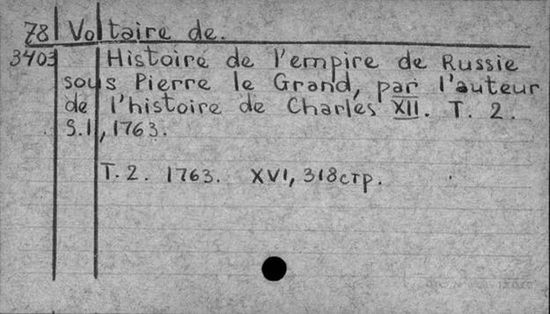 78 Voltaire de.
3403 Histoire de l'empire de Russie
sous Pierre le Grand, par l'auteur
de l'histoire de Charles XII. T. 2.
S.l., 1763.
T. 2. 1763. XVI, 318стр.